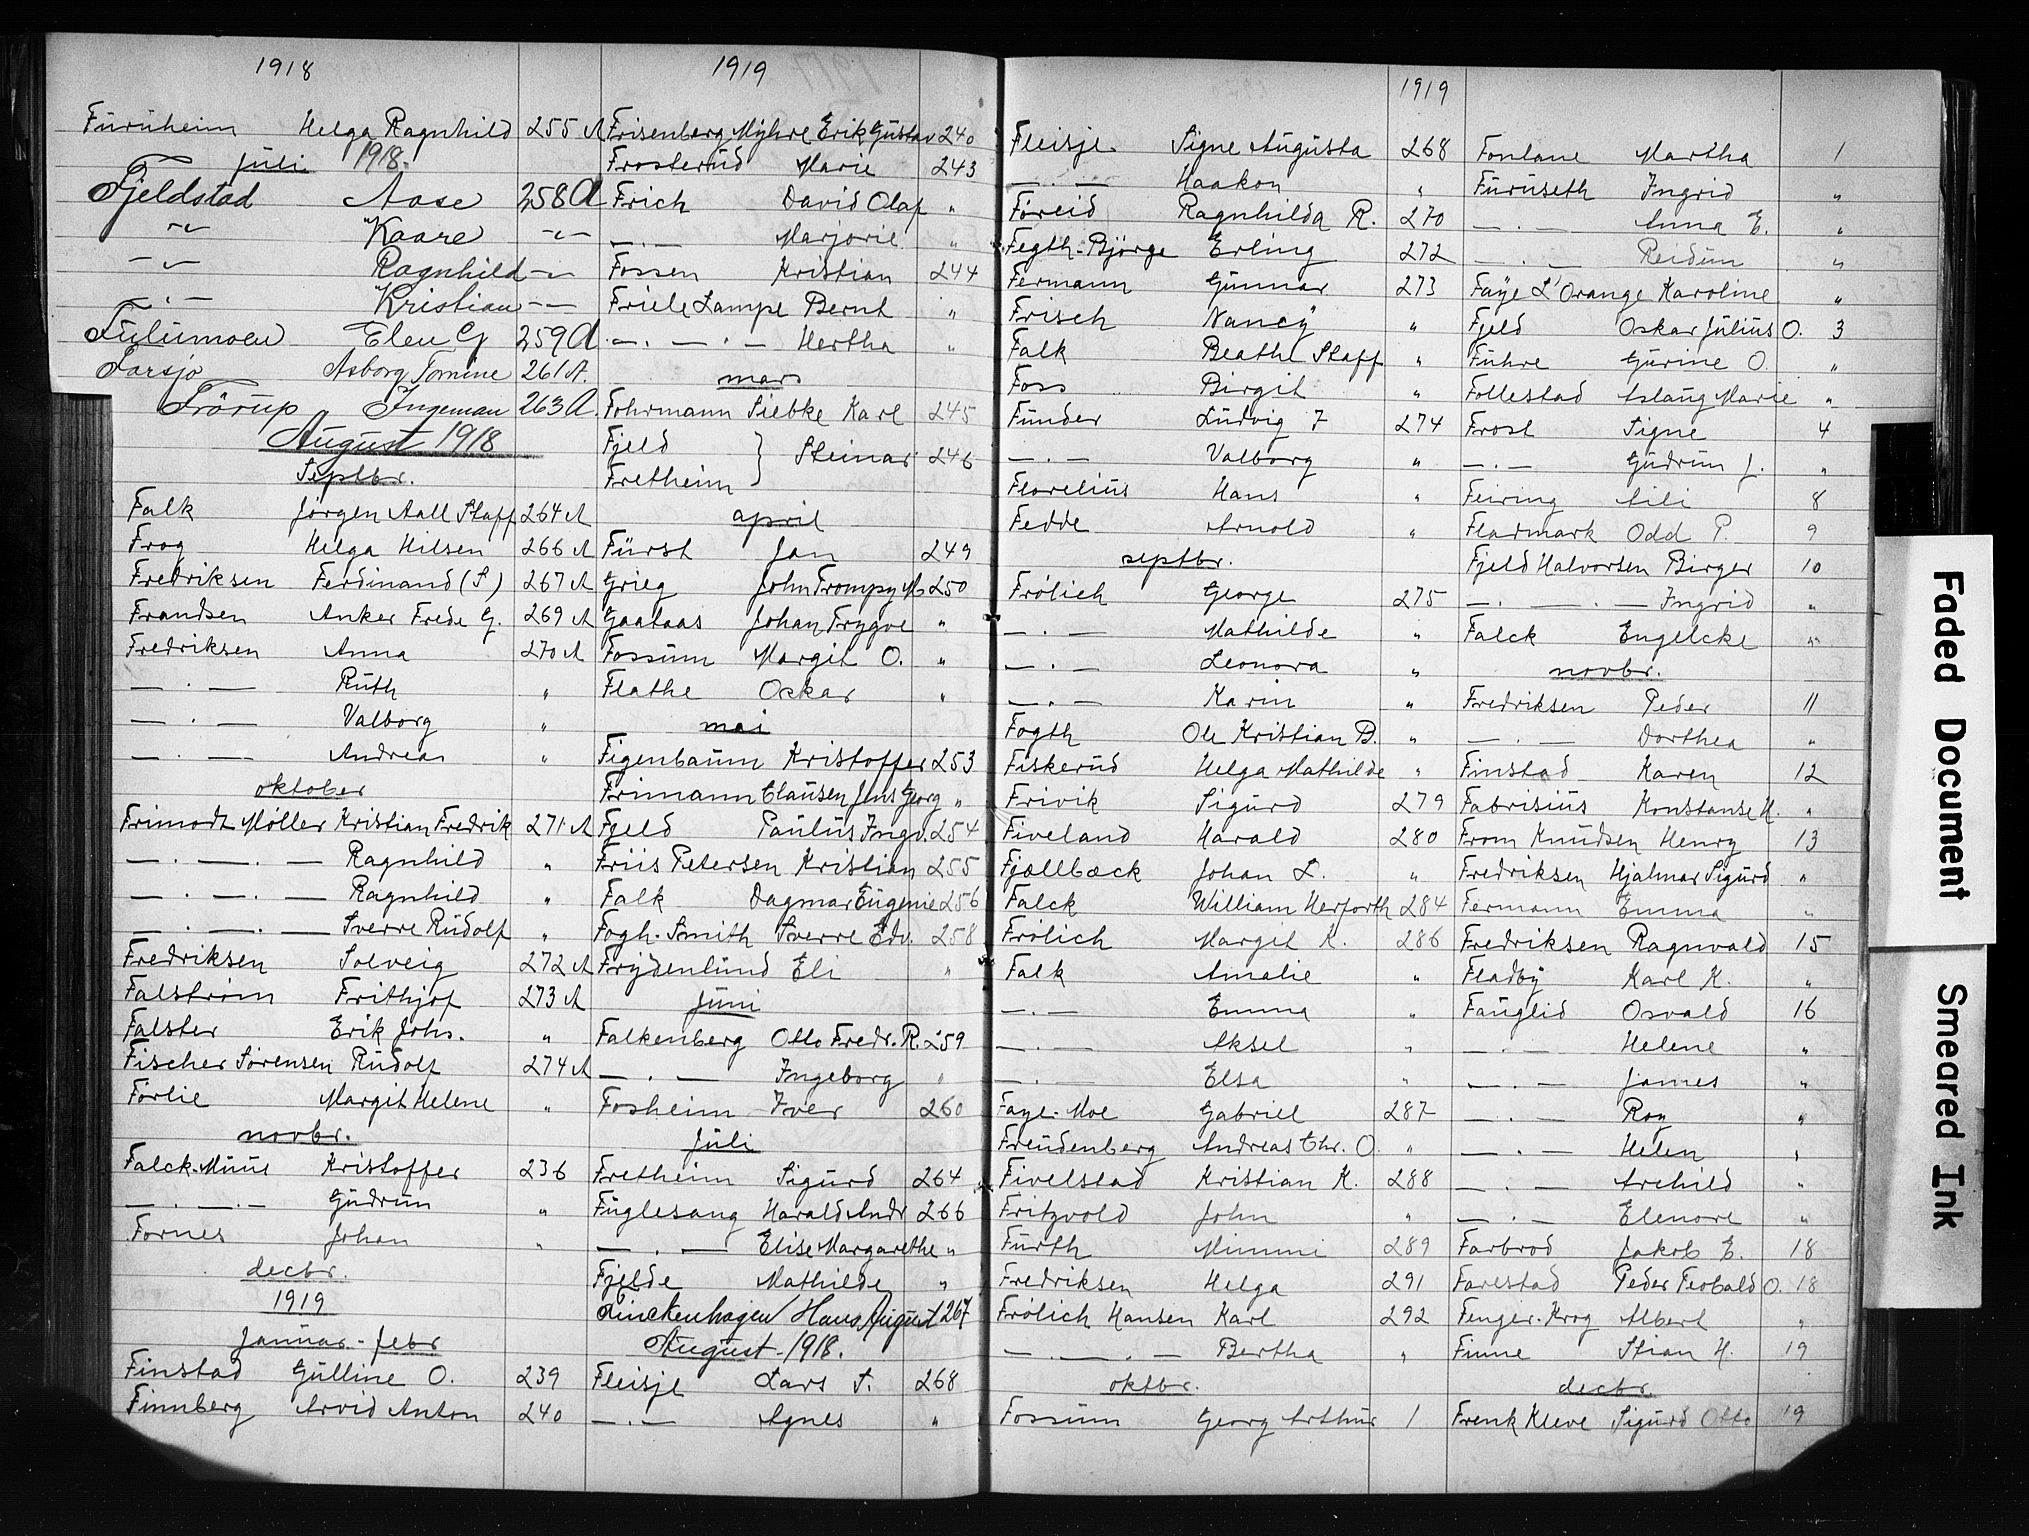 1918
Furuheim Helga Ragnhild 255 A
Juli 1918.
Fjeldstad Aase 258 A
-"- Kaare -"-
-"- Ragnhild -"-
- . - Kristian - -
Fulumoen Elen G 259 A
Farsjø Asborg Tomine 261 A.
Frörup Ingeman 263 A.
August 1918
Septbr.
Falk Jørgen Aall Staff 264 A
Frog Helga Hilsen 266 A
Fredriksen Ferdinand (S) 267 A
Frandsen Anker Frede G. 269 A
Fredriksen Anna 270 A
— . — Ruth "
— . — Valborg "
— . — Andreas "
oktober
Frimodt Møller Kristian Fredrik 271 A
— . — . — Ragnhild "
— . — . — Ragnhild "
— . — . — Sverre Rudolf "
Fredriksen Solveig 272 A
Falstrøm Frithjof 273 A
Falster Erik Johs. "
Fischer Sørensen Rudolf 274 A
Førlie Margit Helene "
novbr.
Falck-Muus Kristoffer 236
— . — . — Gudrun "
Fornes Johan "
decbr.
1919
Januar - febr
Finstad Gulline O. 239
Finnberg Arvid Anton 240
1919
Frisenberg Myhre Erik Gustav 240
Frosterud Marie 243
Frich David Olaf "
— . — Marjorie "
Fossen Kristian 244
Friele Lampe Bernt "
— . — . — Hertha "
mars
Fohrmann Siebke Karl 245
Fjeld
Fretheim } Steinar 246
april
Fürst Jan 249
Grieg John Trompy M. 250
Gaataas Johan Trygve "
Fossum Margit O. "
Flathe Oskar "
mai
Figenbaum Kristoffer 253
Frimann Clausen Jens Georg "
Fjeld Paulus Ingv. 254
Friis Petersen Kristian 255
Falk Dagmar Eugenie 256
Fogh-Smith Sverre Edv. 258
Frydenlund Eli "
Juni
Falkenberg Otto Fredr. R. 259
— . — Ingeborg "
Fosheim Iver 260
Juli
Fretheim Sigurd 264
Fuglesang Harald Andr 266
— . — Elise Margarethe "
Fjelde Mathilde "
Finckenhagen Hans August 267
August - 1918.
Fleisje Lars S. 268
— . — Agnes "
1919
Fleisje. Signe Augusta 268
— . — Haakon "
Føreid Ragnhilda R. 270
Fegth-Bjørge Erling 272
Fermann Gunnar 273
Frisch Nancy "
Falk Beathe Staff "
Foss Birgit "
Funder Ludvig F 274
— . — Valborg "
Florelius Hans "
Fedde Arnold "
septbr.
Frølich George 275
— . — Mathilde "
— . — Leonora "
— . — Karin "
Fogth Ole Kristian B. "
Fiskerud Helga Mathilde "
Frivik Sigurd 279
Fiveland Harald 280
Fjællbæck Johan L. "
Falck William Herforth 284
Frølich Margit K. 286
Falk Amalie "
— . — Emma "
— . — Aksel "
— . — Elsa "
Faye-Moe Gabriel 287
Freudenberg Andreas Chr. O. "
Fivelstad Kristian K. 288
Fritzvold John "
Furth Mimmi 289
Fredriksen Helga 291
Frølich Hansen Karl 292
— . — . — Bertha "
oktbr.
Fossum Georg Arthur 1
Fontane Martha 1
Furuseth Ingrid "
— . — Anna E. "
— . — Reidun "
Faye L'Orange Karoline "
Fjeld Oskar Julius O. 3
Fuhre Gurine O. "
Follestad Aslaug Marie "
Frost Signe 4
— . — Gudrun J. "
Feiring Aili 8
Fladmark Odd P. 9
Fjeld Halvorsen Birger 10
— . — . — Ingrid "
Falck Engelcke "
novbr.
Fredriksen Peder 11
— . — Dorthea "
Finstad Karen 12
Fabrisius Konstanse H. "
From Knudsen Henry 13
Fredriksen Hjalmar Sigurd "
Fermann Emma "
Fredriksen Ragnvald 15
Fladby Karl K. "
Fauglid Osvald 16
— . — Helene "
— . — James "
— . — Roy "
— . — Helen "
— . — Archild "
— . — Elenore "
Farbrod Jakob E. 18
Farestad Peder Teobald O. 18
Fenger-Krog Albert "
Finne Stian H. 19
decbr.
Frenk Kleve Sigurd Otto 19
Faded Document
Smeared Ink